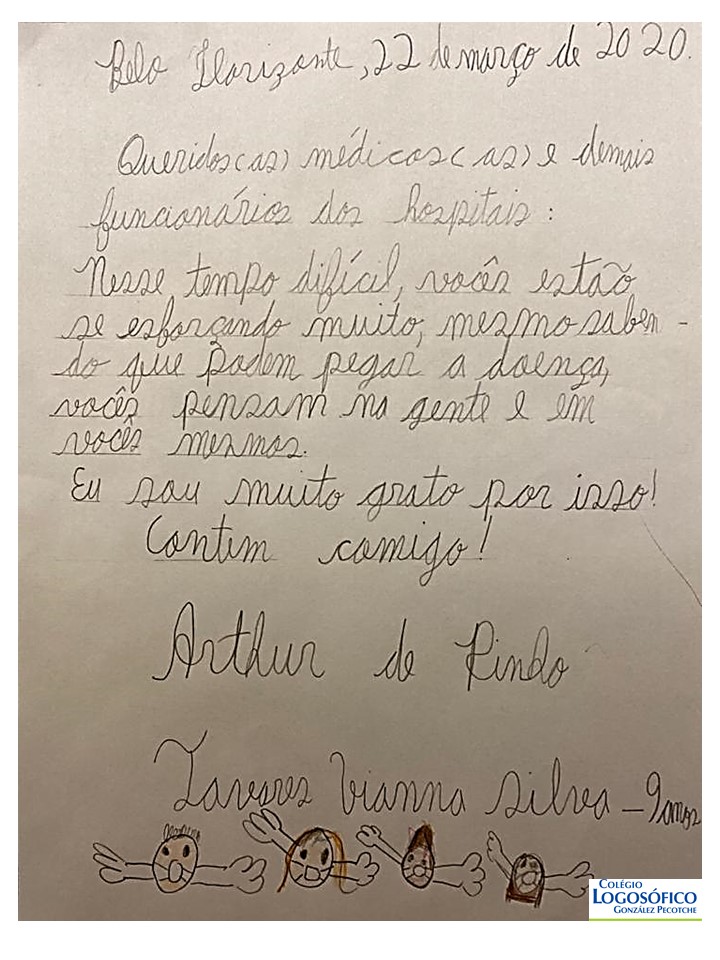 Belo Horizonte, 22 de março de 2020.
Queridos(as) médicos(as) e demais
funcionários dos hospitais:
Nesse tempo difícil, vocês estão
se esforçando muito, mesmo saben-
do que podem pegar a doença,
vocês pensam na gente e em
vocês mesmos.
Eu sou muito grato por isso!
Contem comigo!
Arthur de Pindo
Tavares Vianna Silva - 9 anos
COLÉGIO
LOGOSÓFICO
GONZÁLEZ PECOTCHE